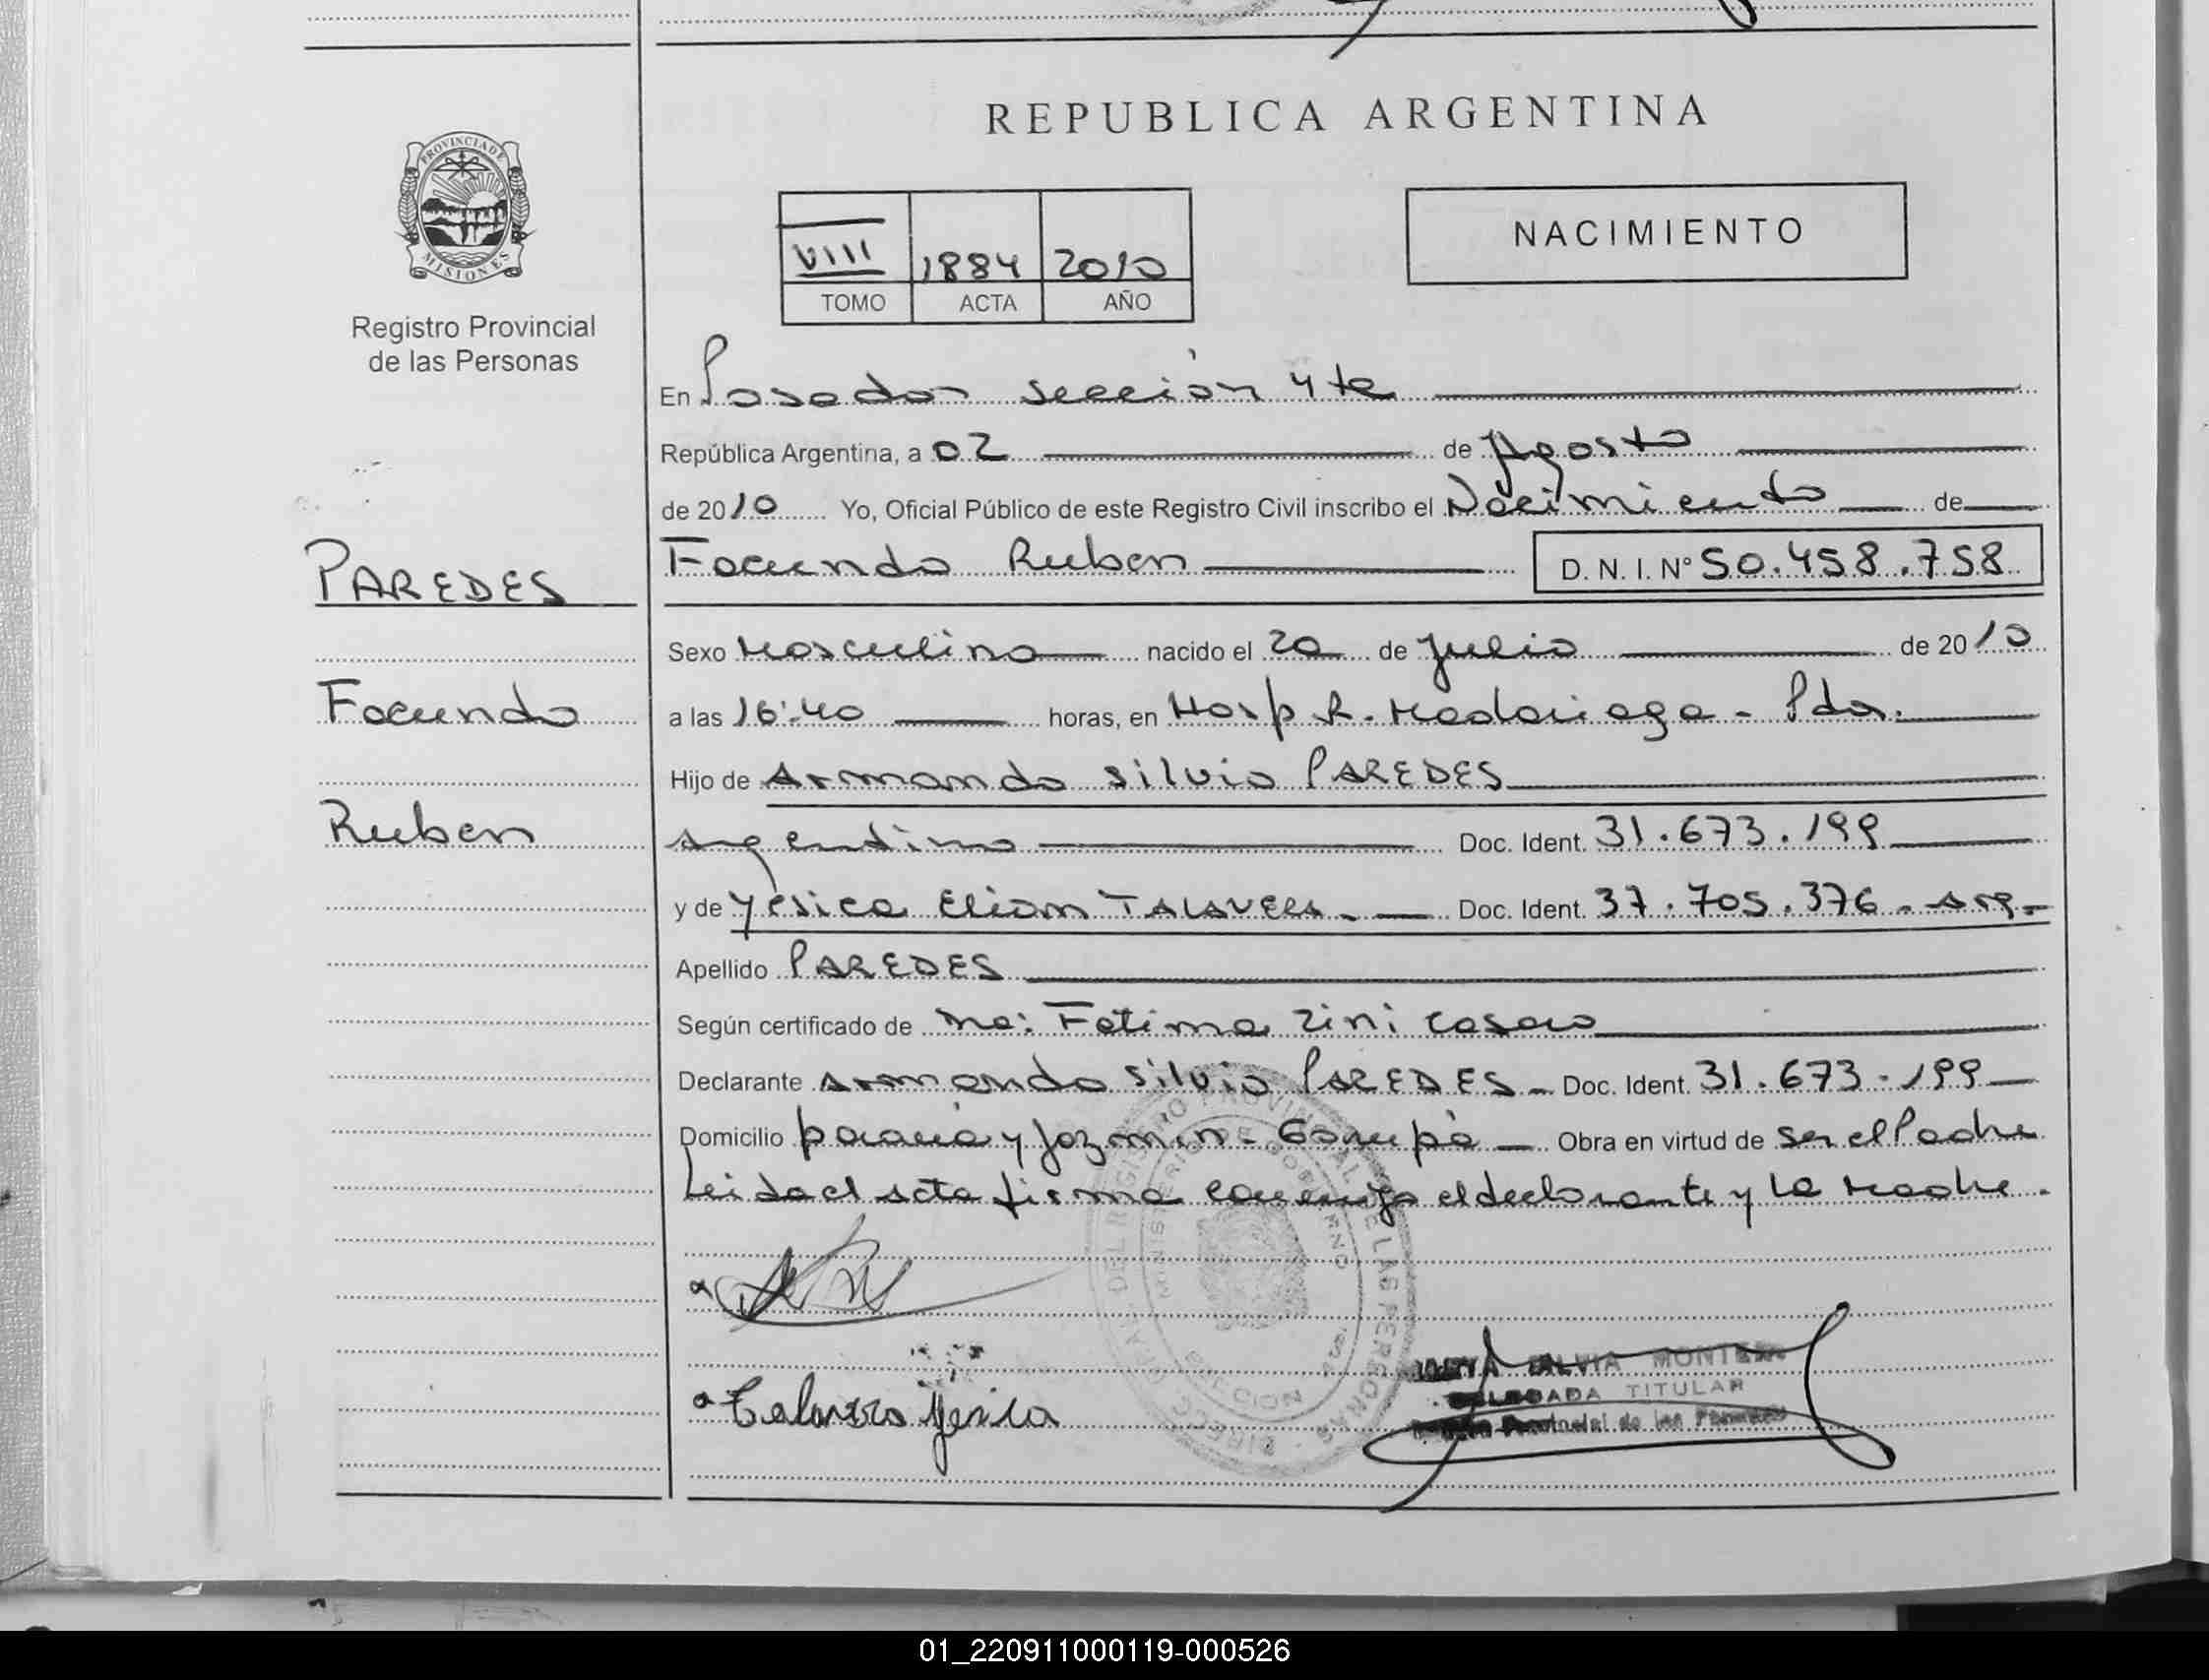 REPUBLICA ARGENTINA
PROVINCIA DE
MISIONES
Registro Provincial
de las Personas
NACIMIENTO
VIII 1884 2010
TOMO ACTA AÑO
En Posadas sección 4ta
República Argentina, a 02 de Agosto
de 2010 Yo, Oficial Público de este Registro Civil inscribo el Nacimiento de
Facundo Ruben D. N. I. N° 50.458.758
PAREDES
Facundo
Ruben
Sexo Masculino nacido el 20 de Julio de 2010
a las 16:40 horas, en Hosp R. Madariaga - Pdas.
Hijo de Armando Silvio PAREDES
argentino Doc. Ident. 31.673.199
y de Yesica Elian TALAVERA - Doc. Ident. 37.705.376 - arg -
Apellido PAREDES
Según certificado de Fatima Zini
Declarante Armando Silvio PAREDES - Doc. Ident. 31.673.199
Domicilio y Jazmin - Garupá Obra en virtud de ser el Padre
Leida el acta firma conmigo el declarante y la Madre.
Talavera Yesica
SILVIA
DELEGADA TITULAR
Provincial de las Personas
01_220911000119-000526